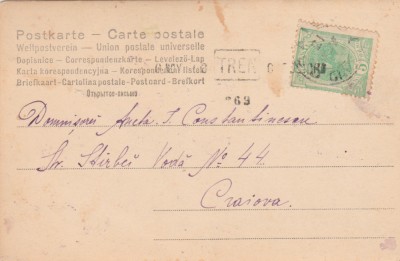 Postkarte – Carte postale
Weltpostverein – Union postale universelle
Dopisnice – Correspondenzkarte – Levelező-Lap
Karta korespondencyjna – Korespondenční lístek
Briefkaart – Cartolina postale – Postcard – Brefkort
TREN
*69
Domnișorei Aneta I. Constantinescu
Str. Știrbei Vodă No 44
Craiova.